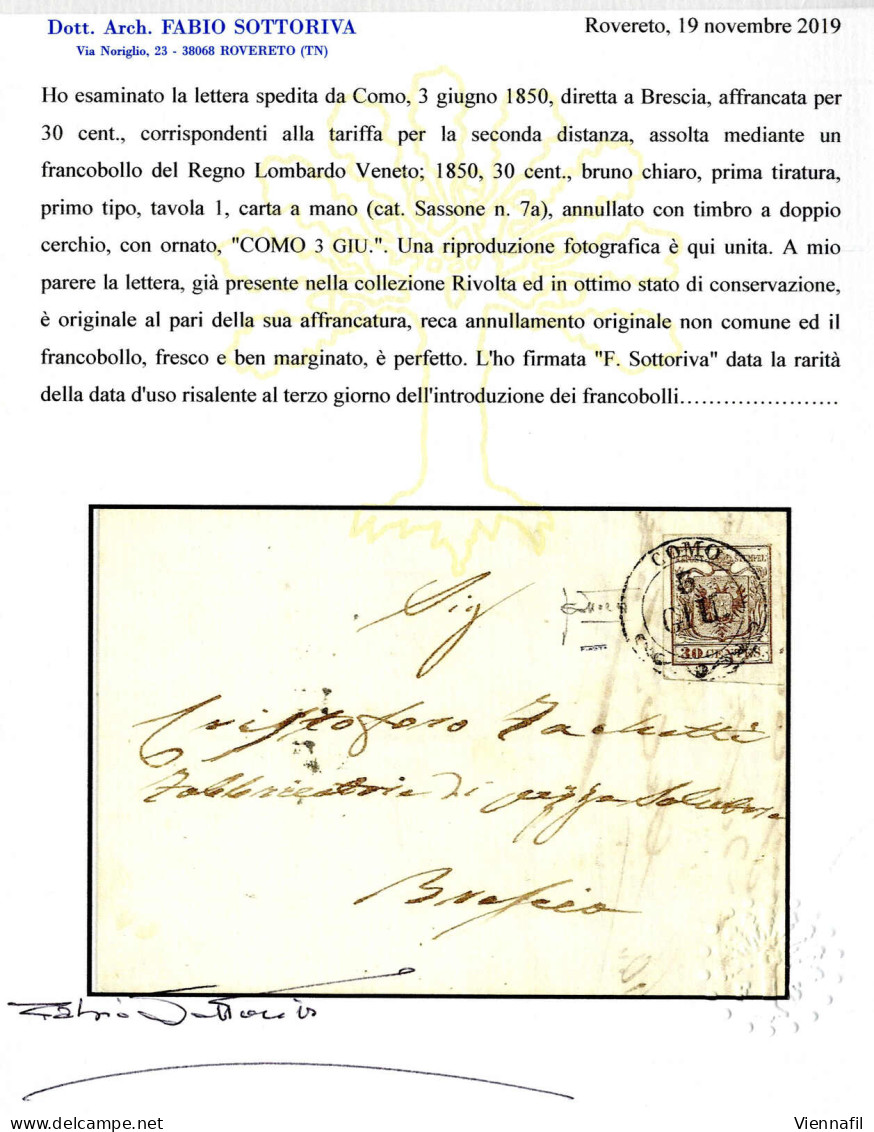 Dott. Arch. FABIO SOTTORIVA
Rovereto, 19 novembre 2019
Via Noriglio, 23 - 38068 ROVERETO (TN)
Ho esaminato la lettera spedita da Como, 3 giugno 1850, diretta a Brescia, affrancata per
30 cent., corrispondenti alla tariffa per la seconda distanza, assolta mediante un
francobollo del Regno Lombardo Veneto; 1850, 30 cent., bruno chiaro, prima tiratura,
primo tipo, tavola 1, carta a mano (cat. Sassone n. 7a), annullato con timbro a doppio
cerchio, con ornato, "COMO 3 GIU.". Una riproduzione fotografica è qui unita. A mio
parere la lettera, già presente nella collezione Rivolta ed in ottimo stato di conservazione,
è originale al pari della sua affrancatura, reca annullamento originale non comune ed il
francobollo, fresco e ben marginato, è perfetto. L'ho firmata "F. Sottoriva" data la rarità
della data d'uso risalente al terzo giorno dell'introduzione dei francobolli......................
COMO
3
GIU.
30 CENTES.
Sig
Cristoforo Zachetti
Fabbricatore di
Brescia
Fabio Sottoriva
Viennafil